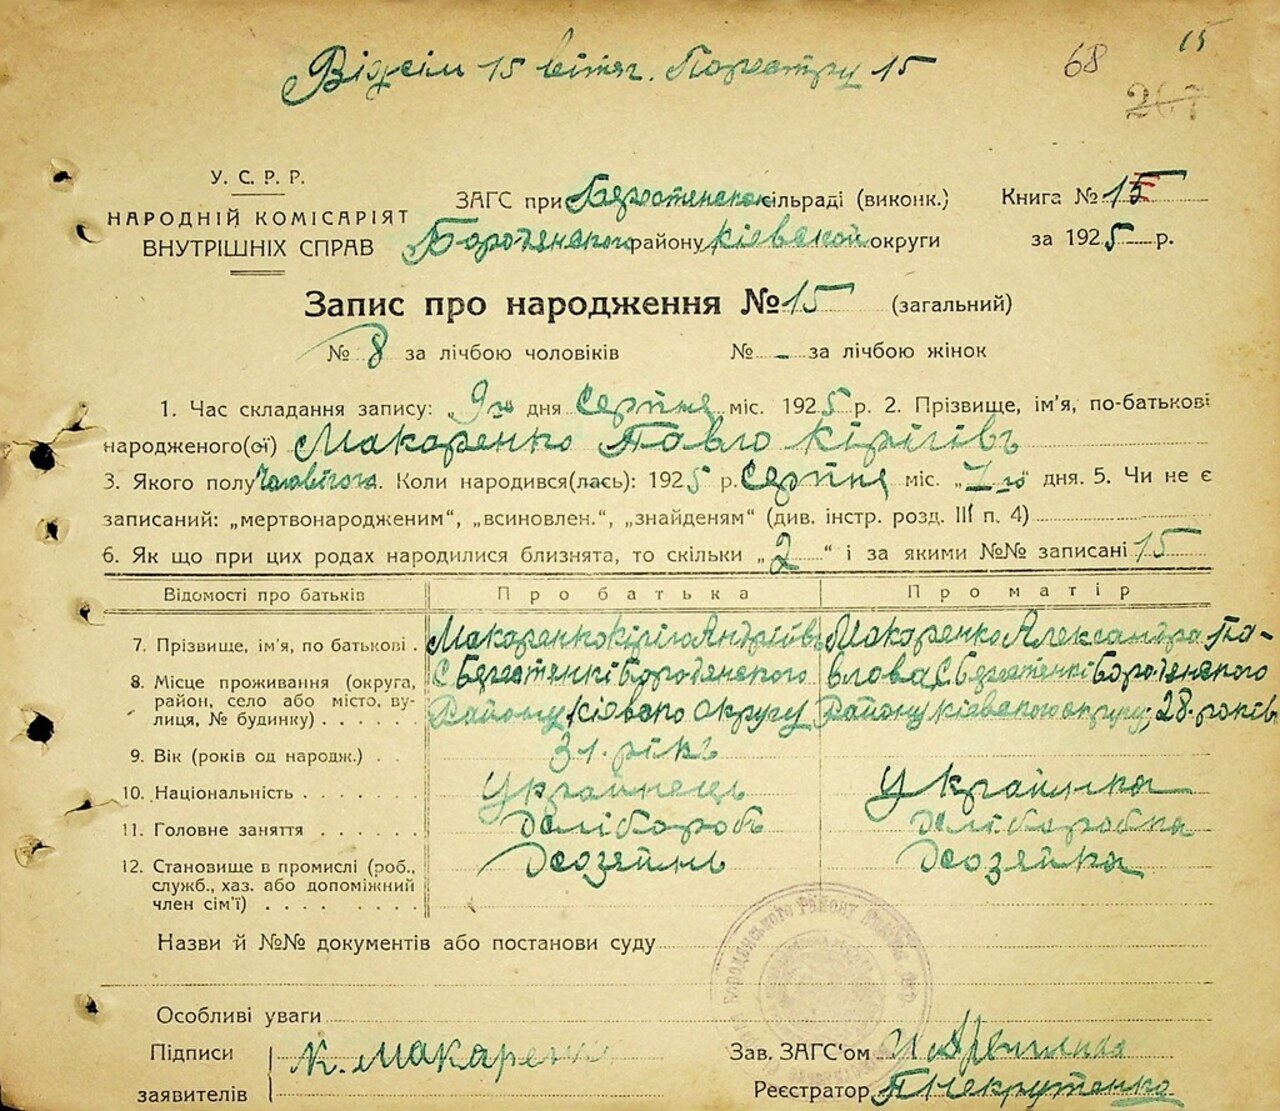 15
68
Відсіль 15 витяг. По реєстру 15
267
У. С. Р. Р.
НАРОДНІЙ КОМІСАРІЯТ
ВНУТРІШНІХ СПРАВ
ЗАГС при сільраді (виконк.) Книга № 15
Бородянского району Київской округи за 1925 р.
Запис про народження № 15 (загальний)
№ 8 за лічбою чоловіків № - за лічбою жінок
1. Час складання запису: „ 9го дня Серпня міс. 1925 р. 2. Прізвище, ім'я, по-батькові
народженого(ої) Макаренко Павло Кірігівъ
3. Якого полу Чоловічого. Коли народився(лась): 1925 р. Серпня міс. „ 7го дня. 5. Чи не є
записаний: „мертвонародженим“, „всиновлен.“, „знайденям“ (див. інстр. розд. III п. 4)
6. Як що при цих родах народилися близнята, то скільки „ 2 “ і за якими №№ записані 15
Відомості про батьків Про батька Про матір
7. Прізвище, ім'я, по батькові . Макаренко Кіріло Андріївъ Макаренко Александра Па-
8. Місце проживання (округа, С Берестенкі Бородянского влова, С. Берестенкі Бородянского
район, село або місто, ву-
лиця, № будинку) . . . . . Району Кіовско округу Району Кіовского округу, 28. років
9. Вік (років од народж.) . . 31. рікъ
10. Національність . . . . . . Українець Українка
11. Головне заняття . . . . . . Хліборобъ Хліборобка
12. Становище в промислі (роб., Хозяїнъ Хозяйка
служб., хаз. або допоміжний
член сім'ї) . . . . . . . .
Назви й №№ документів або постанови суду
Особливі уваги
Підписи К. Макаренко Зав. ЗАГС'ом
заявителів Реєстратор П Некрутенко